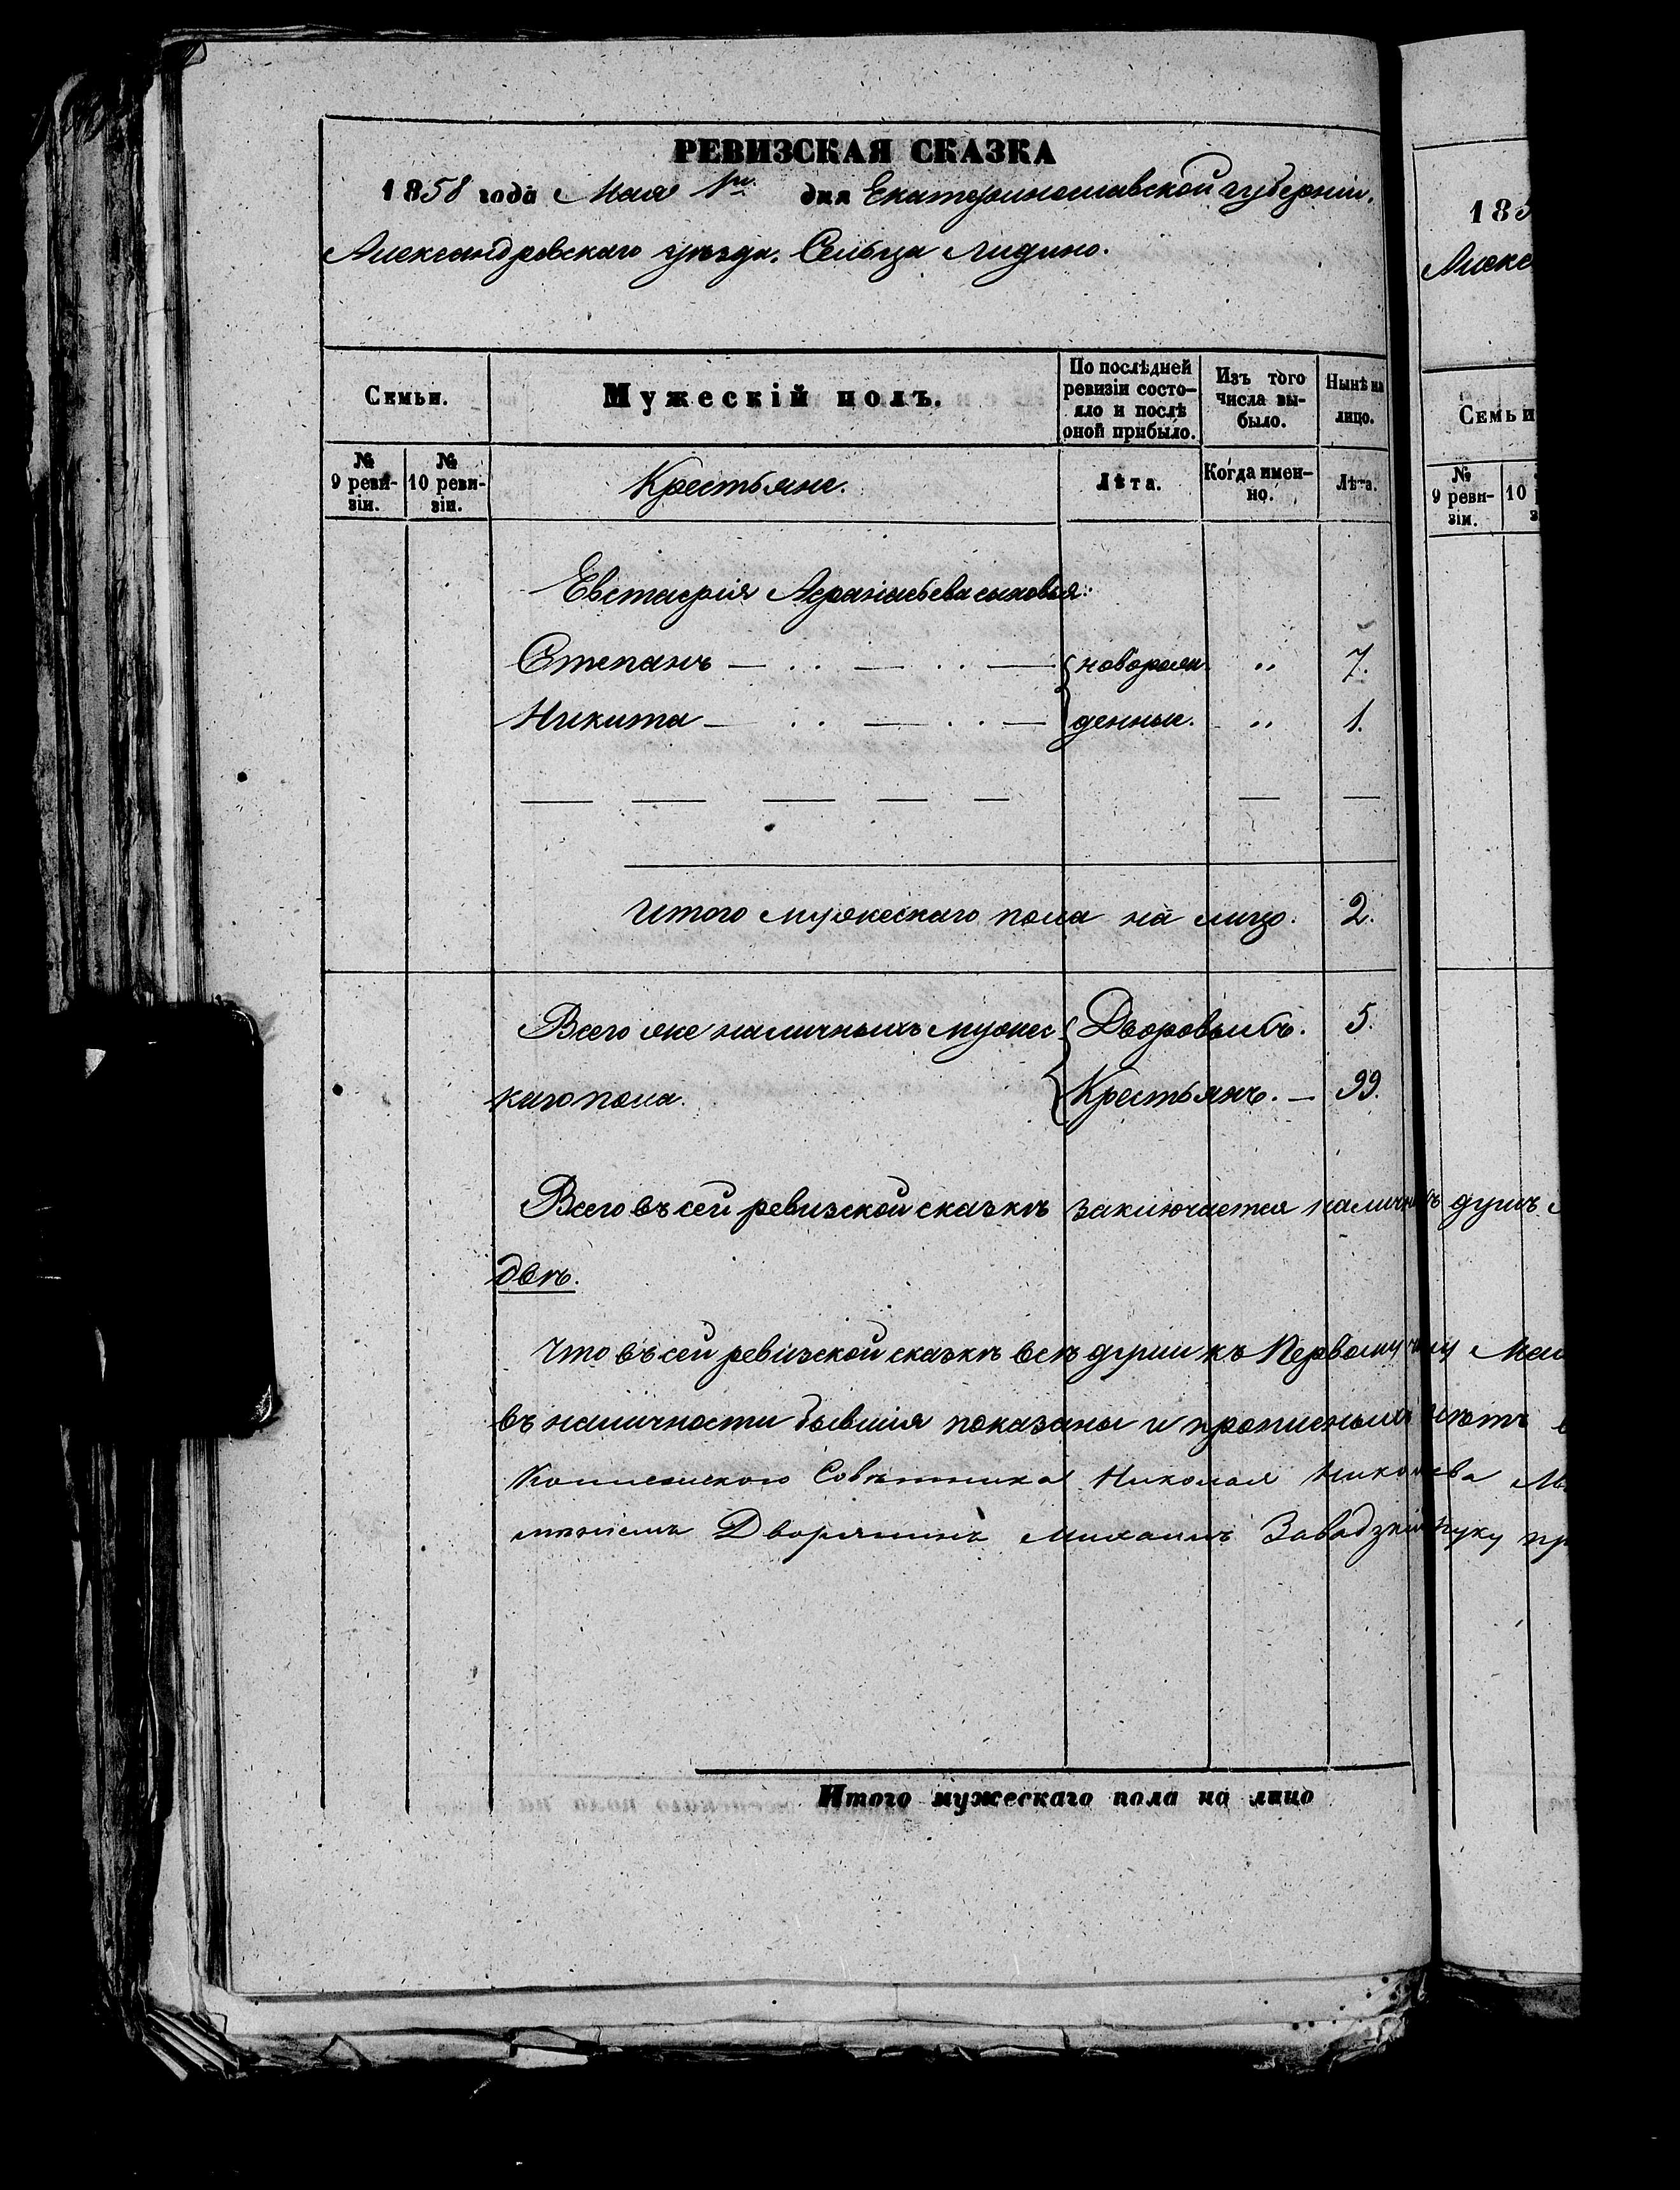 РЕВИЗСКАЯ СКАЗКА
1858 года Мая 1го дня Екатеринославской губерніи,
Александровскаго уѣзда. Сельца Лидино.
185
Алекс
Семьи.
Мужескій полъ.
По послѣдней ревизіи состояло и послѣ оной прибыло.
Изъ того числа выбыло.
Нынѣ на лицо.
Семьи
№ 9 ревизіи.
№ 10 ревизіи.
Крестьяне.
Лѣта.
Когда именно.
Лѣта.
№ 9 ревизіи.
10
Евстафія Афанасьева сыновья:
Степанъ — . . — . . — новорож „ 7.
Никита — . . — . . — денные. „ 1.
Итого мужескаго пола на лицо. 2.
Всего же наличныхъ мужес Дворовыхъ. 5.
каго пола. Крестьянъ. — 99.
Всего въ сей ревизской сказкѣ заключается наличныхъ душъ
двѣ.
Что въ сей ревизской сказкѣ всѣ души къ Первому числу Мая
въ наличности бывшія показаны и прописныхъ нѣтъ
Коллежскаго Совѣтника Николая Николаева
Дворянинъ Михаилъ Завадзкій руку пр
Итого мужескаго пола на лицо